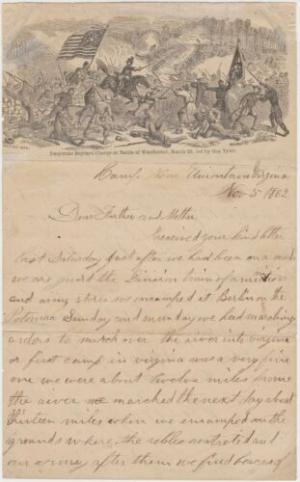 Desperate Bayonet Charge at Battle of Winchester, March 23, led by Gen Tyler.
Camp Mountain Virginia
Nov 5 1862
Dear Father and Mother
I received your kind letter
last Saturday just after we had been on a
we are guard the Division train
and army stores we encamped at Berlin on the
Potomac Sunday and monday we had marching
orders to march over the river into virginia
or first camp in virginia was a very fine
one we were about twelve miles from
the river we marched the next day about
thirteen miles when we encamped on the
grounds where the rebbles and
our army after them we find of